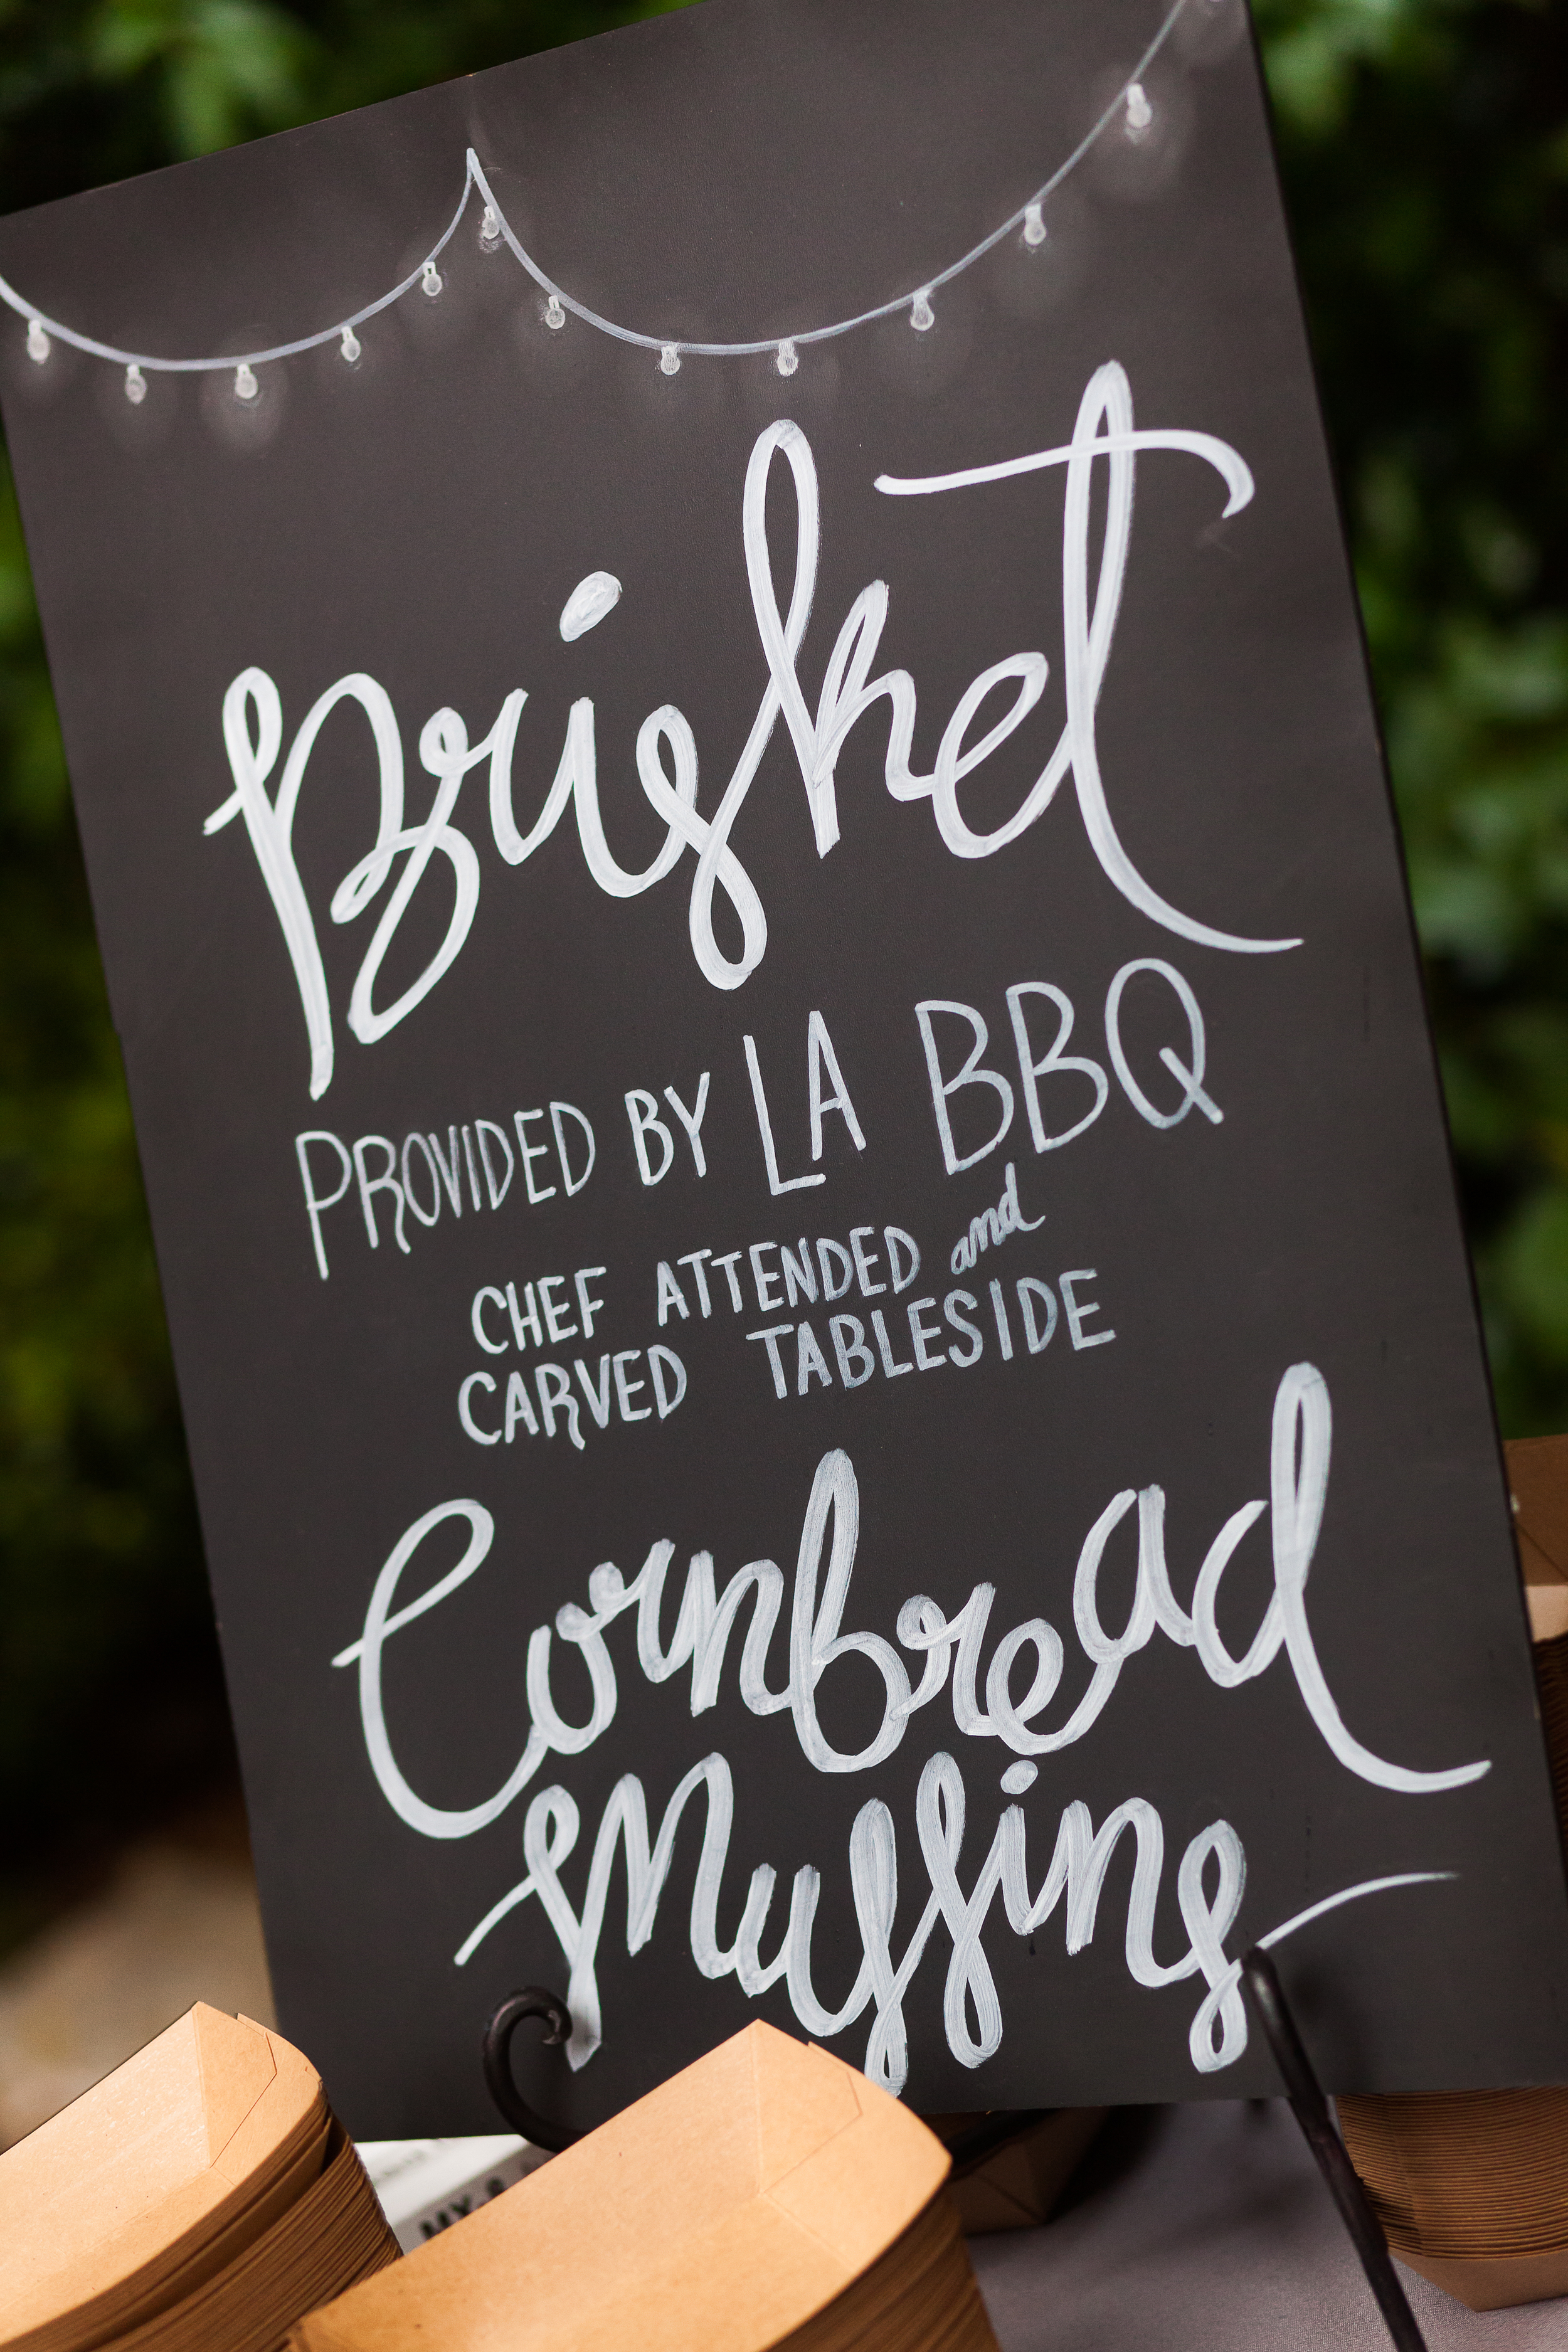 Brisket
PROVIDED BY LA BBQ
CHEF ATTENDED and
CARVED TABLESIDE
Cornbread
Muffins